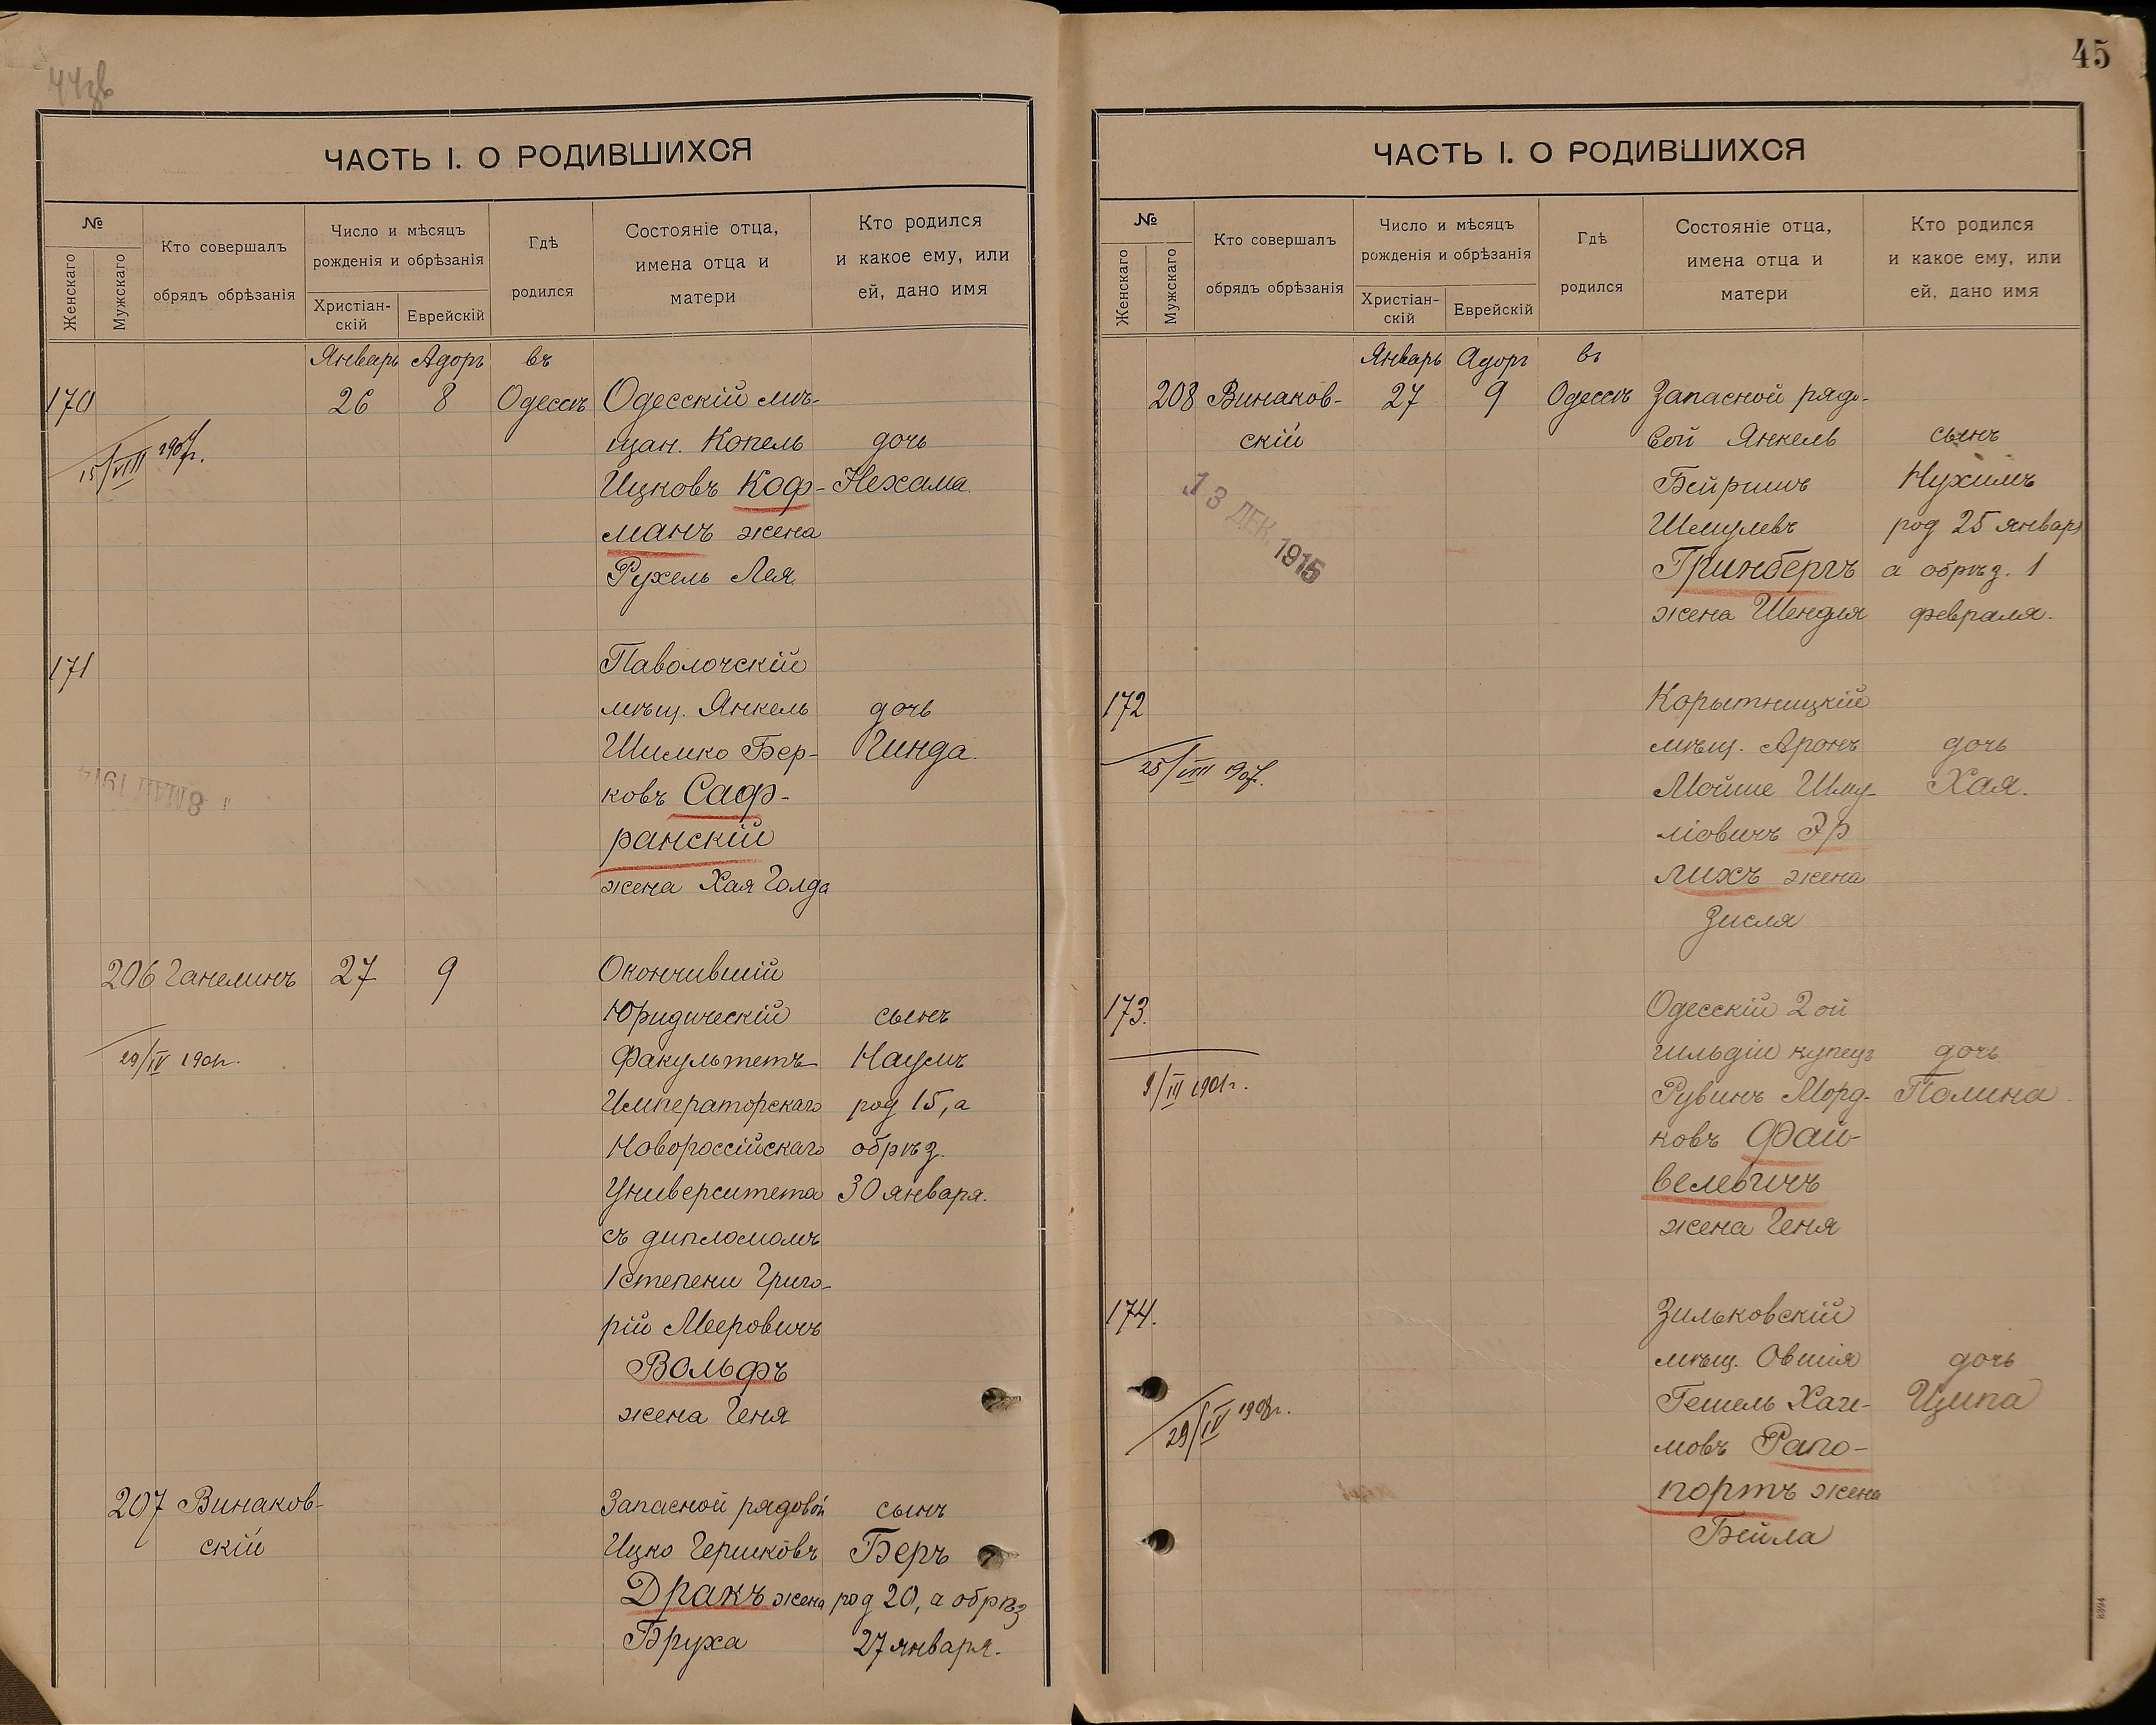 44зв
ЧАСТЬ I. О РОДИВШИХСЯ
№
Женскаго
Мужскаго
Кто совершалъ
обрядъ обрѣзанія
Число и мѣсяцъ
рожденія и обрѣзанія
Христіан-
скій
Еврейскій
Гдѣ
родился
Состояніе отца,
имена отца и
матери
Кто родился
и какое ему, или
ей, дано имя
Январь Адоръ въ
170 26 8 Одессѣ Одесскій мѣ-
щан. Копель дочь
15/VIII 1907г.
Ицковъ Коф- Нехама
манъ жена
Рухель Лея
171 Паволочскій
мѣщ. Янкель дочь
Шимко Бер- Гинда.
ковъ Саф-
8 МАЙ 1914
ранскій
жена Хая Голда
206 Ганелинъ 27 9 Окончившій
Юридическій сынъ
29/IV 1901г. Факультетъ Наумъ
Императорскаго род 15, а
Новороссійскаго обрѣз.
Университета 30 января.
съ дипломомъ
1 степени Григо-
рій Мееровичъ
Вольфъ
жена Геня
207 Винаков- Запасной рядовой сынъ
скій Ицко Гершковъ Беръ
Дракъ жена род 20, а обрѣз
Бруха 27 января.
45
ЧАСТЬ I. О РОДИВШИХСЯ
№
Женскаго
Мужскаго
Кто совершалъ
обрядъ обрѣзанія
Число и мѣсяцъ
рожденія и обрѣзанія
Христіан-
скій
Еврейскій
Гдѣ
родился
Состояніе отца,
имена отца и
матери
Кто родился
и какое ему, или
ей, дано имя
Январь Адоръ въ
208 Винаков- 27 9 Одессѣ Запасной рядо-
скій вой Янкель сынъ
Бейришъ Нухимъ
13 ДЕК. 1915
Шмулевъ род 25 январ
Гринбергъ а обрѣз. 1
жена Шендля февраля.
172 Корытницкій
мѣщ. Аронъ дочь
25/VIII 1907г.
Мойше Шму- Хая.
ліовичъ Эр
лихъ жена
Зисля
173. Одесскій 2ой
гильдіи купецъ дочь
9/III 1901г. Рувинъ Морд- Полина
ковъ Фай-
велевичъ
жена Геня
174. Зильковскій
мѣщ. Овшія дочь
29/IV 1908г. Гешель Хаи- Ципа
мовъ Рапо-
портъ жена
Бейла